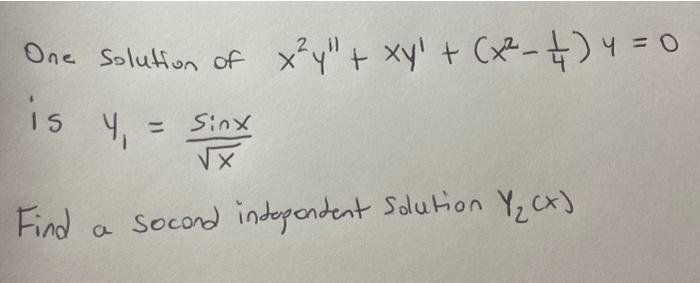 One Solution of x²y" + xy' + (x² - 1/4) y = 0
is y₁ = sinx/√x
Find a second independent solution Y₂(x)